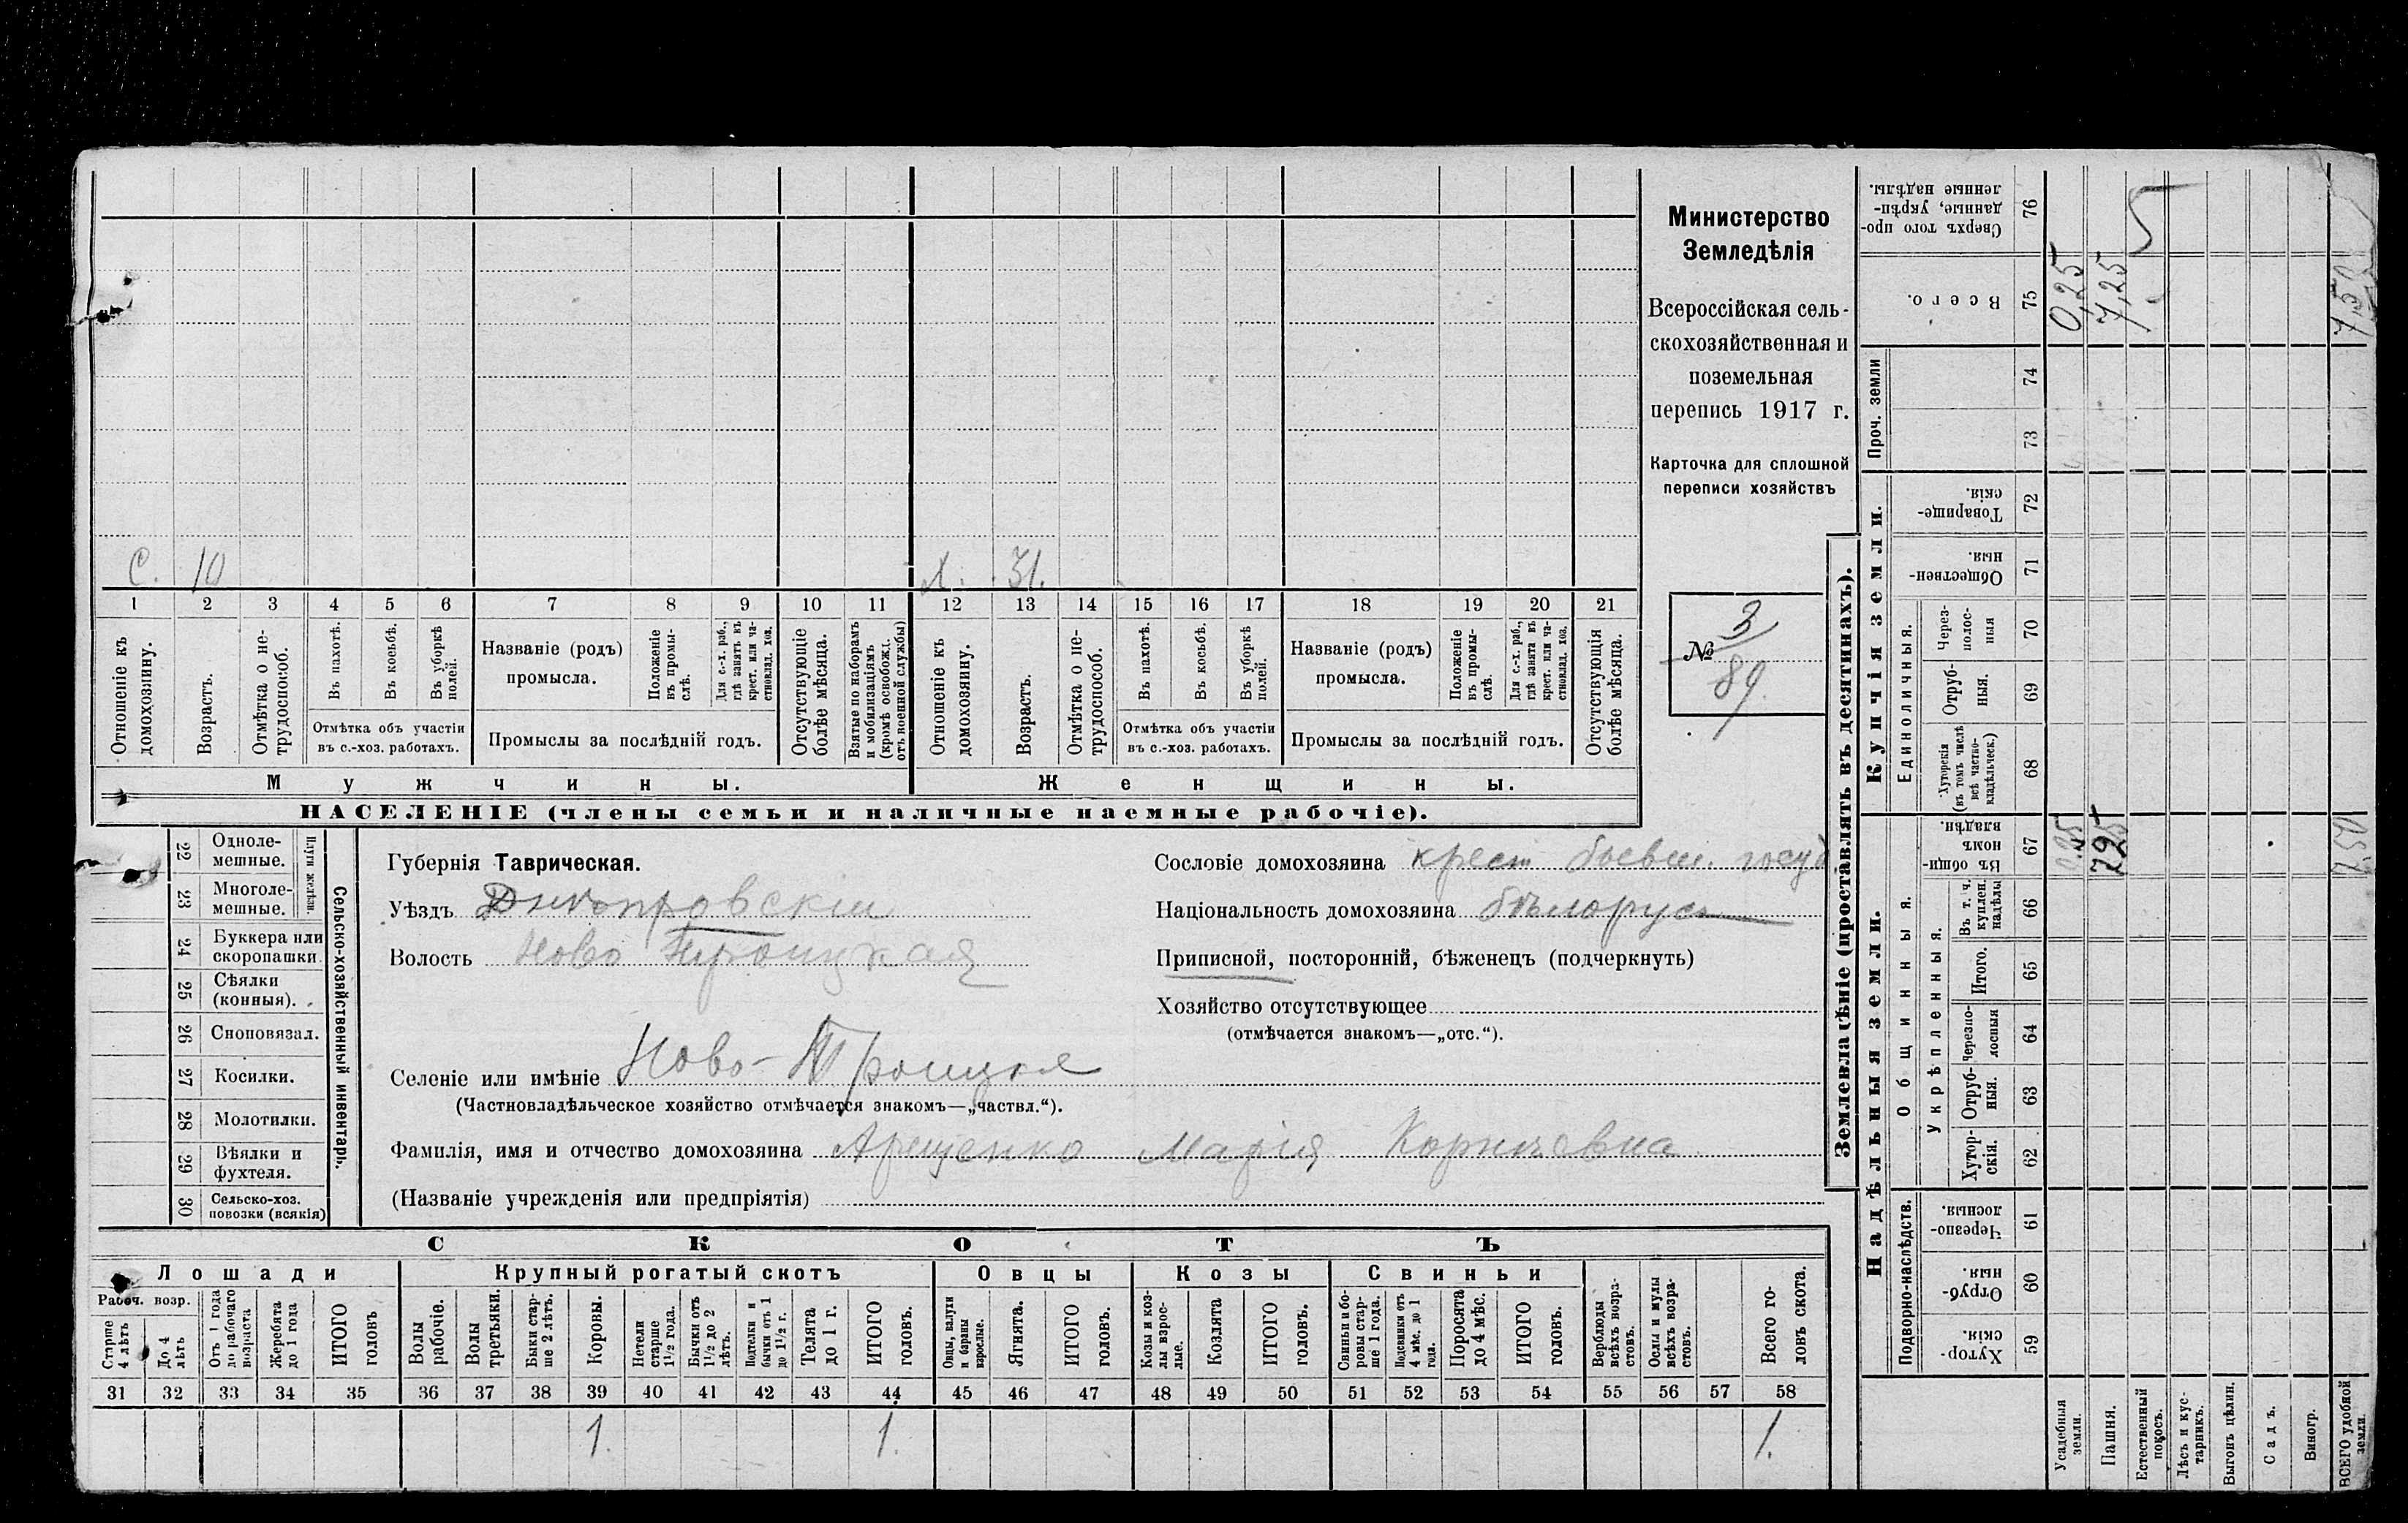 С. 10 Д. 31.
1 2 3 4 5 6 7 8 9 10 11 12 13 14 15 16 17 18 19 20 21
Отношеніе къ домохозяину.
Возрастъ.
Отмѣтка о не-
трудоспособ.
Въ пахотѣ.
Въ косьбѣ.
Въ уборкѣ
полей.
Отмѣтка объ участіи
въ с.-хоз. работахъ.
Названіе (родъ)
промысла.
Положеніе
въ промы-
слѣ.
Для с.-х. раб.,
гдѣ занятъ въ
крест. или ча-
стновлад. хоз.
Промыслы за послѣдній годъ.
Отсутствующіе
болѣе мѣсяца.
Взятые по наборамъ
и мобилизаціямъ
(кромѣ освобожд.
отъ военной службы)
Отношеніе къ
домохозяину.
Возрастъ.
Отмѣтка о не-
трудоспособ.
Въ пахотѣ.
Въ косьбѣ.
Въ уборкѣ
полей.
Отмѣтка объ участіи
въ с.-хоз. работахъ.
Названіе (родъ)
промысла.
Положеніе
въ промы-
слѣ.
Для с.-х. раб.,
гдѣ занята въ
крест. или ча-
стновлад. хоз.
Промыслы за послѣдній годъ.
Отсутствующія
болѣе мѣсяца.
Мужчины. Женщины.
НАСЕЛЕНІЕ (члены семьи и наличные наемные рабочіе).
Министерство
Земледѣлія
Всероссійская сель-
скохозяйственная и
поземельная
перепись 1917 г.
Карточка для сплошной
переписи хозяйствъ
№ 3
89.
22 Одноле-
мешные.
23 Многоле-
мешные.
Плуги желѣзн.
24 Буккера или
скоропашки.
25 Сѣялки
(конныя).
26 Сноповязал.
27 Косилки.
28 Молотилки.
29 Вѣялки и
фухтеля.
30 Сельско-хоз.
повозки (всякія)
Сельско-хозяйственный инвентарь.
Губернія Таврическая.
Уѣздъ Днѣпровскій
Волость Ново Троицкая
Селеніе или имѣніе Ново-Троицкя
(Частновладѣльческое хозяйство отмѣчается знакомъ—„частвл.“).
Фамилія, имя и отчество домохозяина Арещенко Марія Корнѣевна
(Названіе учрежденія или предпріятія)
Сословіе домохозяина крест бывш. госуд
Національность домохозяина бѣлорусъ
Приписной, посторонній, бѣженецъ (подчеркнуть)
Хозяйство отсутствующее
(отмѣчается знакомъ—„отс.“).
СКОТЪ
Лошади Крупный рогатый скотъ Овцы Козы Свиньи
Рабоч. возр.
Старше
4 лѣтъ
До 4
лѣтъ
Отъ 1 года
до рабочаго
возраста
Жеребята
до 1 года
ИТОГО
головъ
Волы
рабочіе.
Волы
третьяки.
Быки стар-
ше 2 лѣтъ.
Коровы.
Нетели
старше
1½ года.
Бычки отъ
1½ до 2
лѣтъ.
Подтелки и
бычки отъ 1
до 1½ г.
Телята
до 1 г.
ИТОГО
головъ.
Овцы, валухи
и бараны
взрослые.
Ягнята.
ИТОГО
головъ.
Козы и коз-
лы взрос-
лые.
Козлята
ИТОГО
головъ.
Свиньи и бо-
ровы стар-
ше 1 года.
Подсвинки отъ
4 мѣс. до 1
года.
Поросята
до 4 мѣс.
ИТОГО
головъ.
Верблюды
всѣхъ возра-
стовъ.
Ослы и мулы
всѣхъ возра-
стовъ.
Всего го-
ловъ скота.
31 32 33 34 35 36 37 38 39 40 41 42 43 44 45 46 47 48 49 50 51 52 53 54 55 56 57 58
1. 1. 1.
Землевладѣніе (проставлять въ десятинахъ).
Надѣльныя земли. Купчія земли. Проч. земли
Подворно-наслѣдств.
Общинныя.
Укрѣпленныя.
Единоличныя.
Хутор-
скія. 59
Отруб-
ныя. 60
Черезпо-
лосныя 61
Хутор-
скія. 62
Отруб-
ныя. 63
Черезпо-
лосныя 64
Итого. 65
Въ т. ч.
куплен.
надѣлы 66
Въ общи-
номъ
владѣн. 67
Хуторскія
(въ томъ числѣ
всѣ частно-
владѣльческ.) 68
Отруб-
ныя. 69
Через-
полос-
ныя 70
Обществен-
ныя. 71
Товарище-
скія. 72
73
74
Всего. 75
Сверхъ того про-
данные, укрѣп-
ленные надѣлы. 76
Усадебныя
земли. 0,25 0,25
Пашня. 7,25 7,25
Естественный
покосъ.
Лѣсъ и кус-
тарникъ.
Выгонъ цѣлин.
Садъ.
Виногр.
ВСЕГО удобной
земли. 7,50 7,50